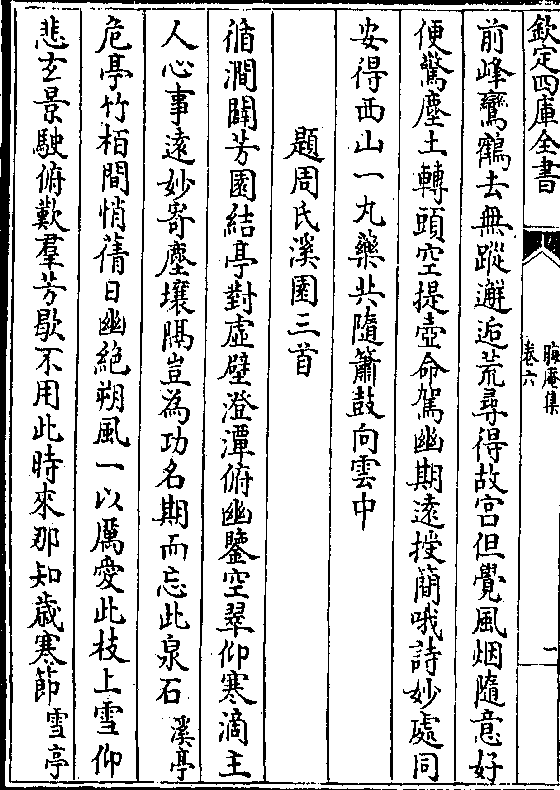 欽定四庫全書
晦庵集
卷六
一
前峰鸞鶴去無蹤邂逅荒尋得故宮但覺風烟隨意好
便驚塵土轉頭空提壺命駕幽期遠授簡哦詩妙處同
安得西山一丸藥共隨簫鼓向雲中
題周氏溪園三首
循澗闢芳園結亭對虛壁澄潭俯幽鑒空翠仰寒滴主
人心事遠妙寄塵壤隔豈為功名期而忘此泉石溪亭
危亭竹栢間悄蒨日幽絶朔風一以厲愛此枝上雪仰
悲玄景駛俯歎羣芳歇不用此時來那知歲寒節雪亭